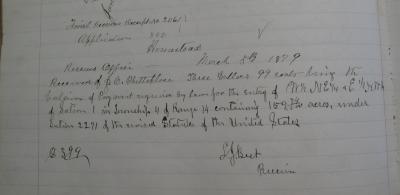 Final Receivers Receipt no 2061
Application 800
Homestead
Receivers Office March 8th 1879
Received of Three Dollars 99 cents being the
Balance of Payment required by law for the entry of W½ NE¼ & E½ NW¼
of Section 1 in Township 4 of Range 14 containing 159 acres, under
Section 2291 of the revised Statutes of the United States
$3.99
Best
Receiver